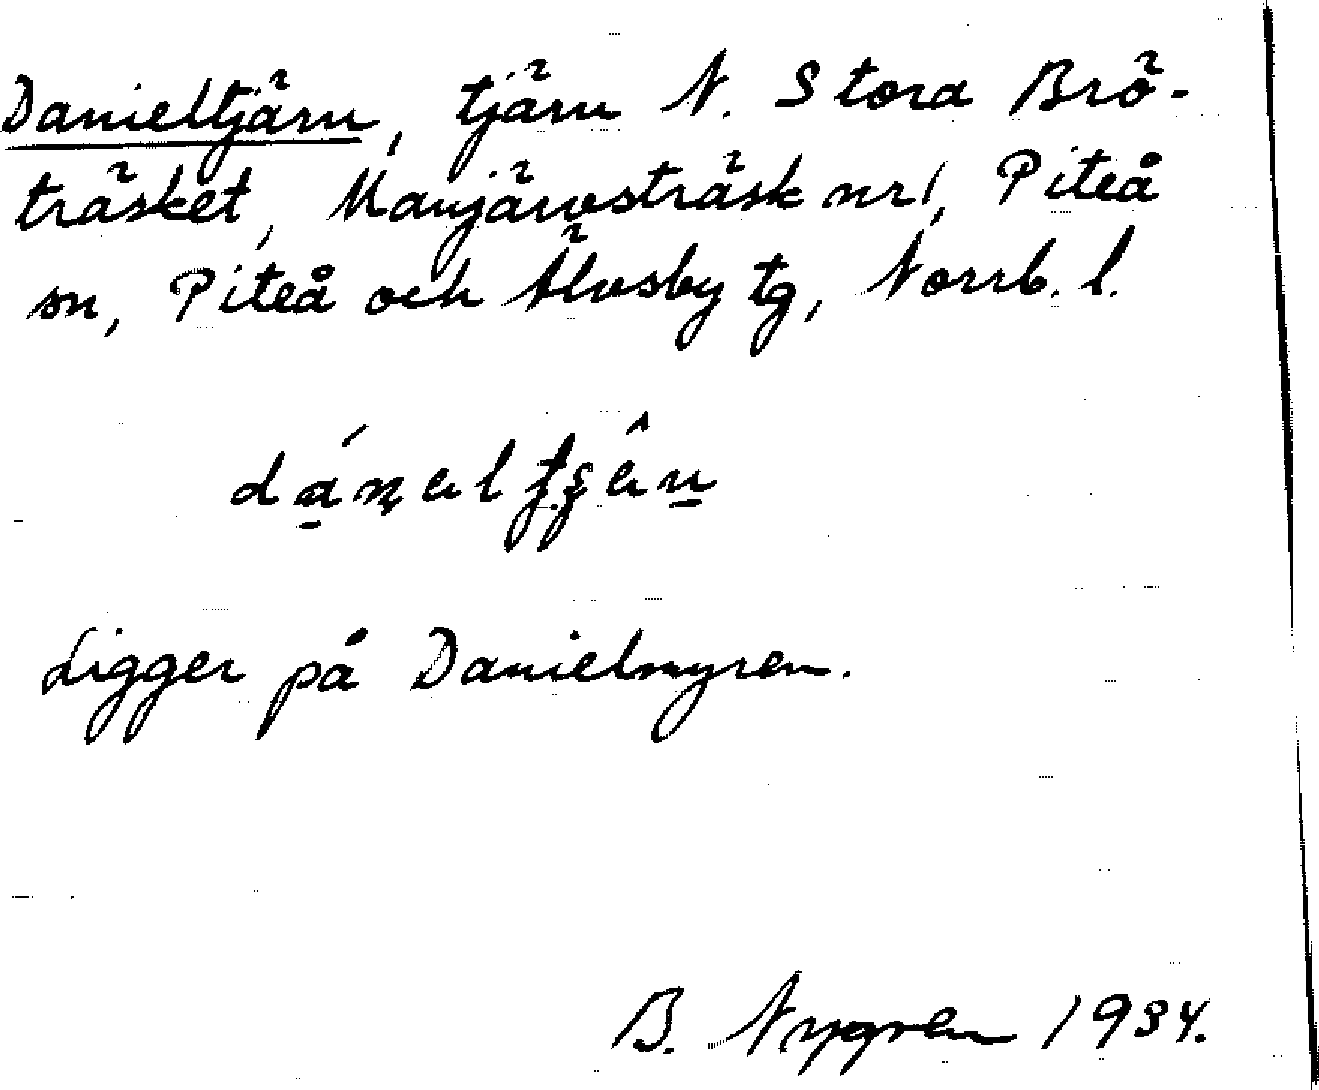 Danieltjärn, tjärn N. Stora Brö-
träsket, Manjärvsträsk nr 1, Piteå
sn, Piteå och Älvsby tg, Norrb. l.
Ligger på Danielmyren.
B. Nygren 1934.